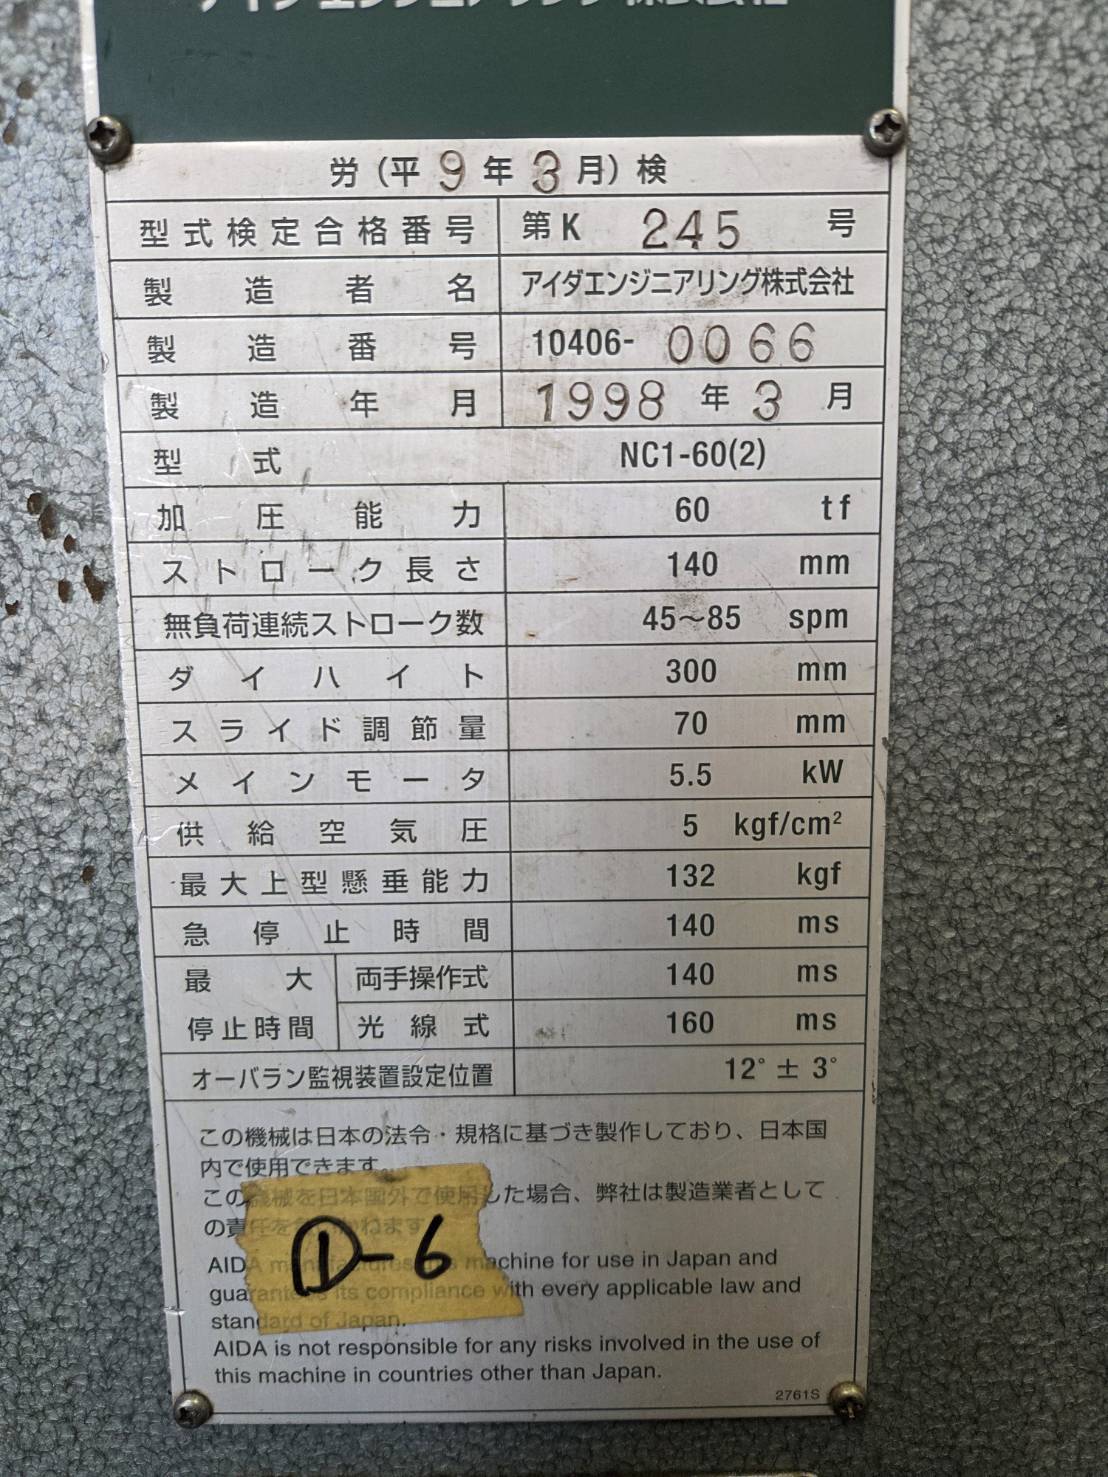 アイダエンジニアリング株式会社
労（平 9 年 3 月）検
型式検定合格番号 第K 245 号
製造者名 アイダエンジニアリング株式会社
製造番号 10406- 0066
製造年月 1998 年 3 月
型式 NC1-60(2)
加圧能力 60 tf
ストローク長さ 140 mm
無負荷連続ストローク数 45～85 spm
ダイハイト 300 mm
スライド調節量 70 mm
メインモータ 5.5 kW
供給空気圧 5 kgf/cm²
最大上型懸垂能力 132 kgf
急停止時間 140 ms
最大 両手操作式 140 ms
停止時間 光線式 160 ms
オーバラン監視装置設定位置 12° ± 3°
この機械は日本の法令・規格に基づき製作しており、日本国
内で使用できます。
この機械を日本国外で使用した場合、弊社は製造業者として
の責任を かねます
①-6
AIDA manufactures this machine for use in Japan and
guarantees its compliance with every applicable law and
standard of Japan.
AIDA is not responsible for any risks involved in the use of
this machine in countries other than Japan.
2761S